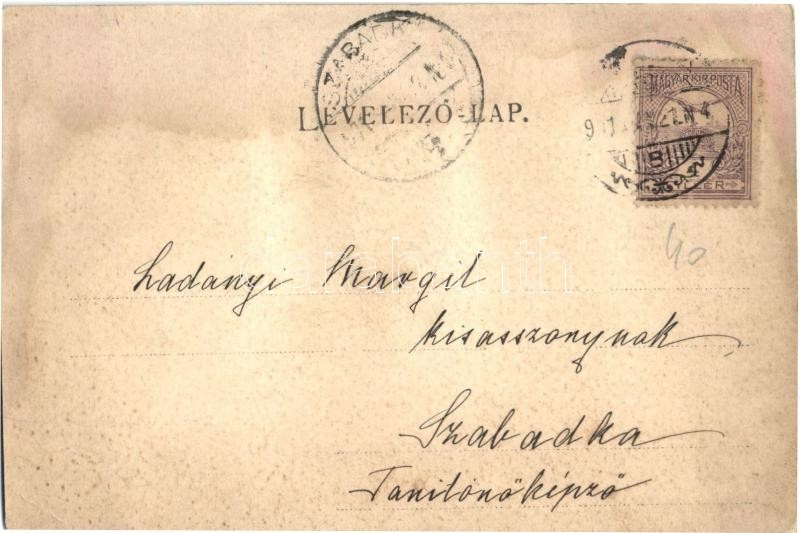 SZABADKA
MAGYAR KIR. POSTA
LEVELEZŐ-LAP.
FILLÉR
40
Ladányi Margit
darabanth
kisasszonynak
Szabadka
Tanitónőképző